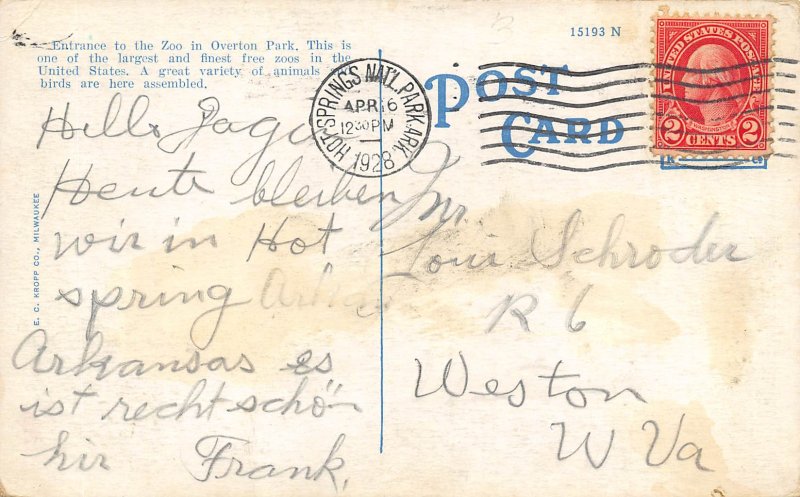 Entrance to the Zoo in Overton Park. This is
one of the largest and finest free zoos in the
United States. A great variety of animals
birds are here assembled.
15193 N
POST
CARD
HOT SPRINGS NAT'L PARK ARK.
APR 6
12 30 PM
1928
UNITED STATES POSTAGE
WASHINGTON
2 CENTS 2
E. C. KROPP CO., MILWAUKEE
Hello
Heute bleiben
wir in Hot
spring
Arkansas es
ist recht schön
hir Frank.
Mr
Louis Schroder
R 6
Weston
W Va